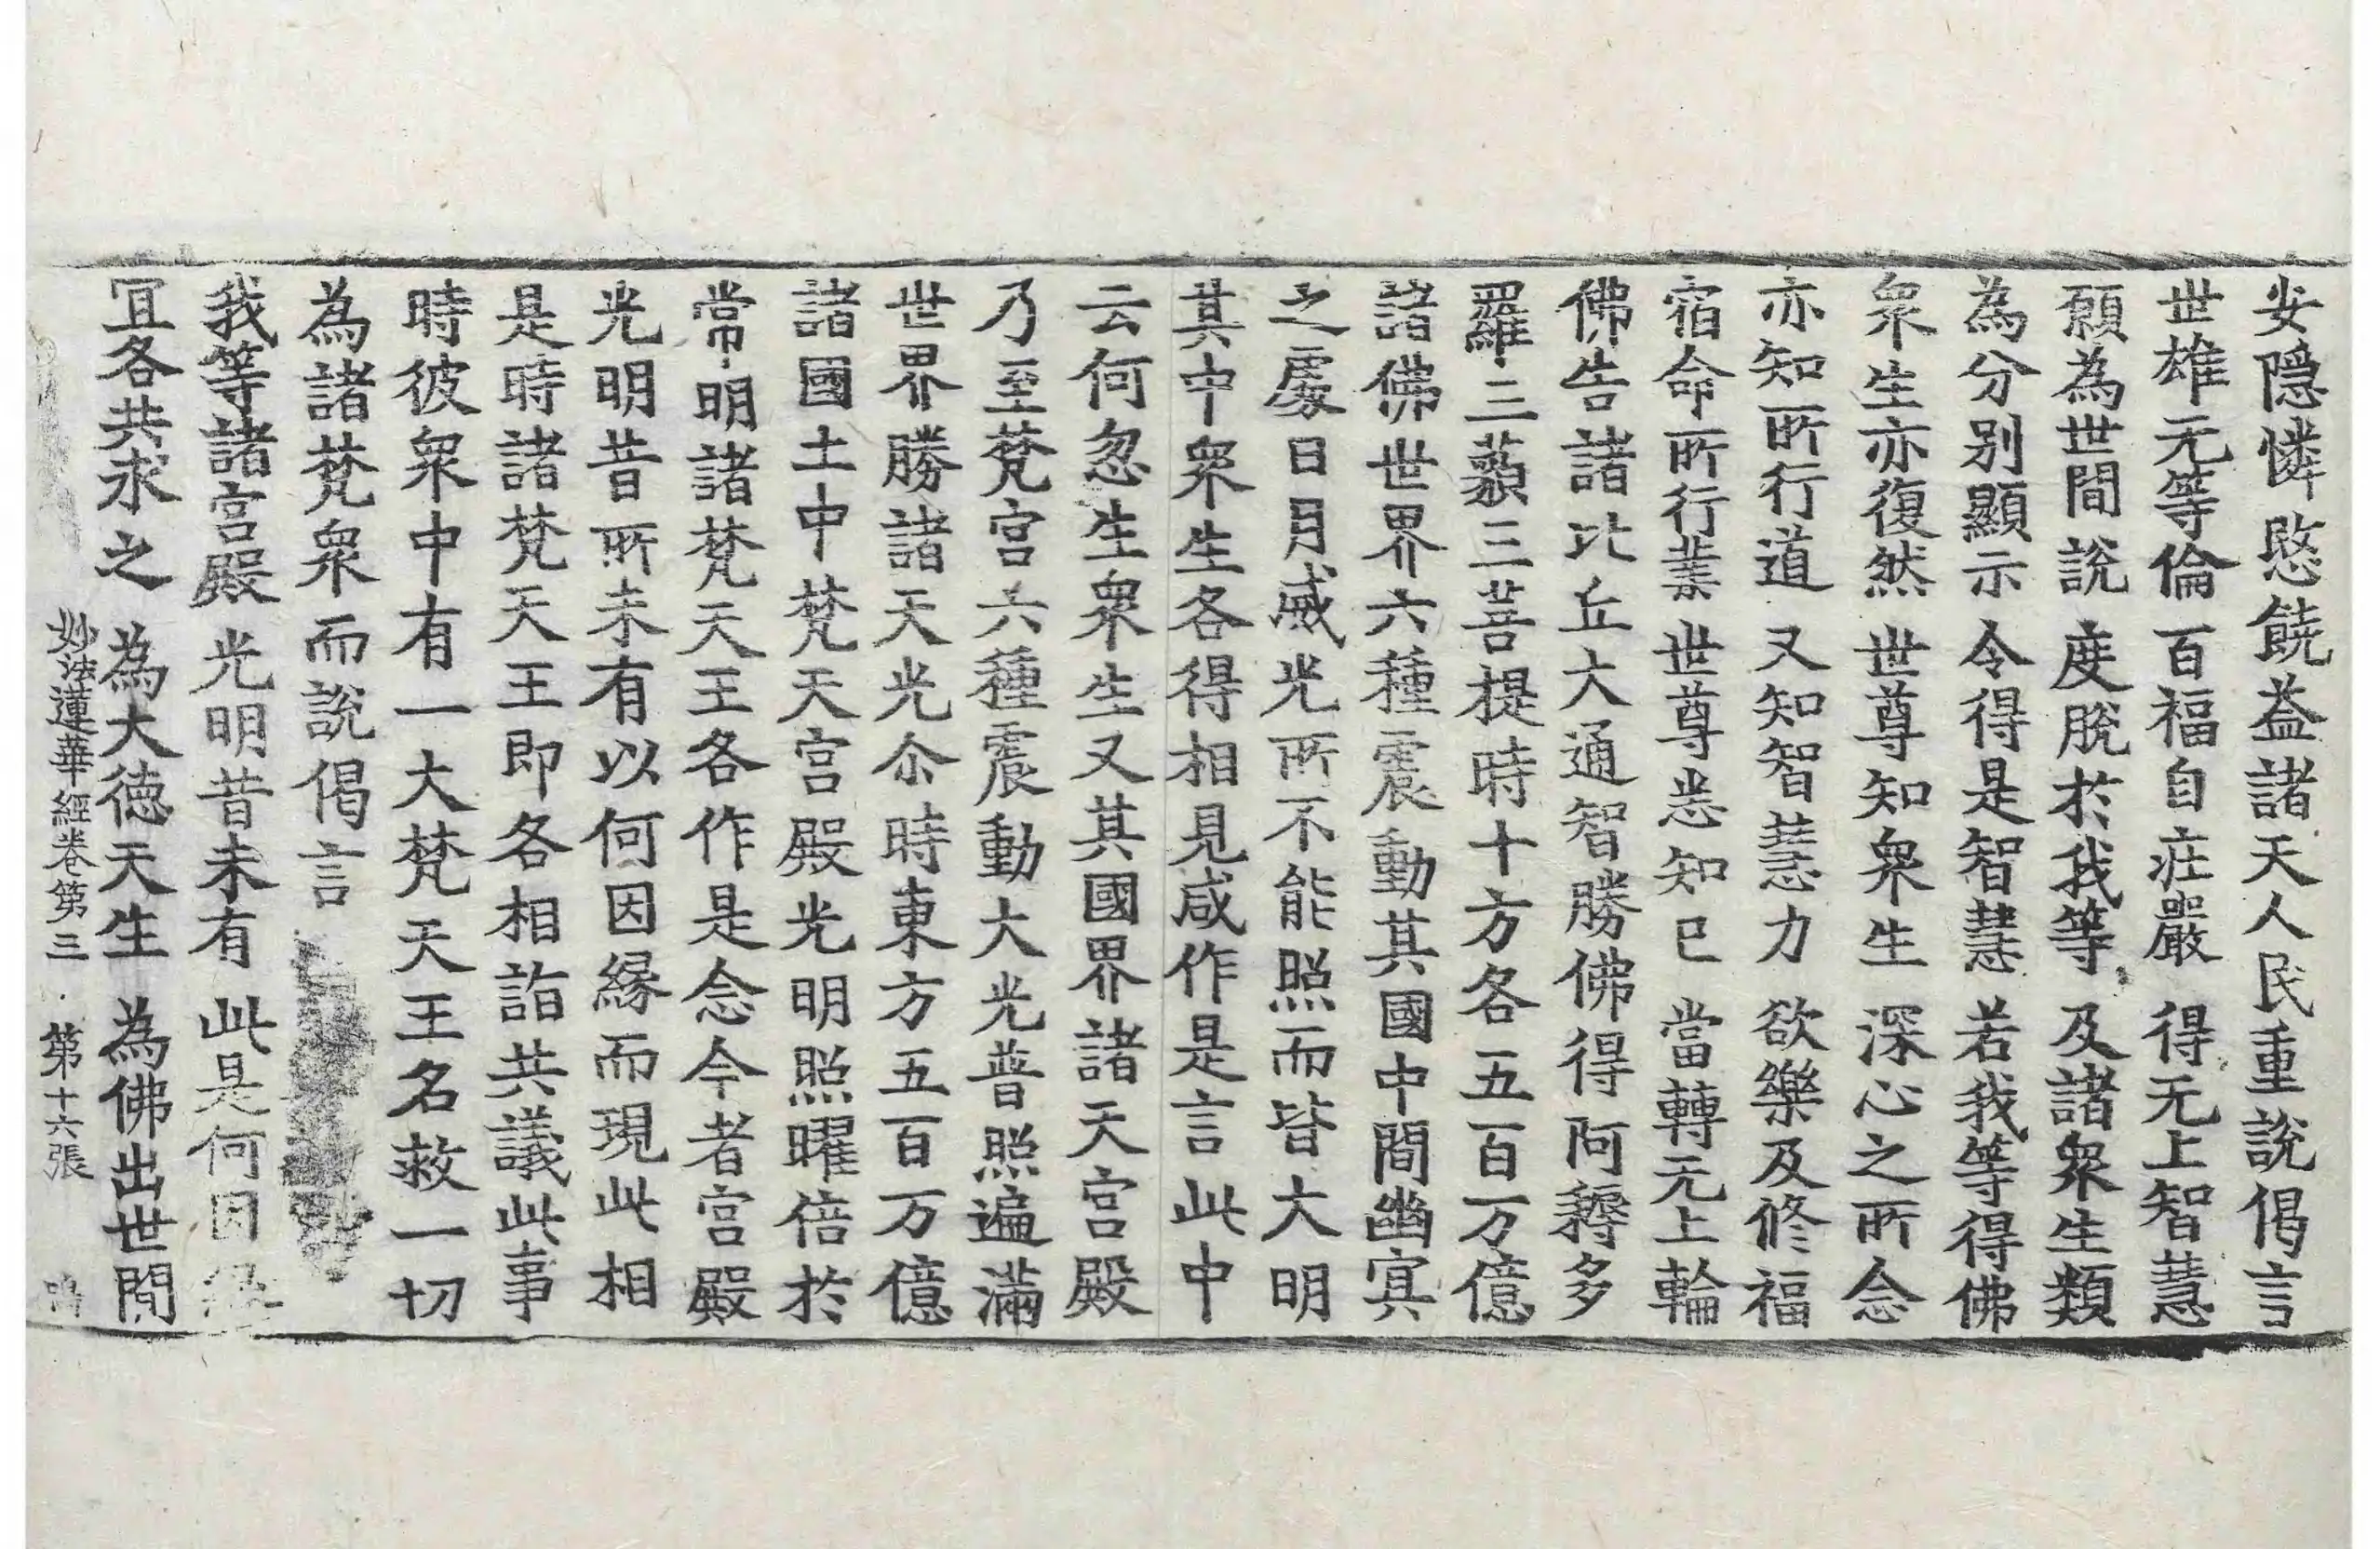 安隱憐愍饒益諸天人民重說偈言
世雄无等倫 百福自莊嚴 得无上智慧
願為世間說 度脫於我等 及諸衆生類
為分別顯示 令得是智慧 若我等得佛
衆生亦復然 世尊知衆生 深心之所念
亦知所行道 又知智慧力 欲樂及修福
宿命所行業 世尊悉知已 當轉无上輪
佛告諸比丘大通智勝佛得阿耨多
羅三藐三菩提時十方各五百万億
諸佛世界六種震動其國中間幽冥
之處日月威光所不能照而皆大明
其中衆生各得相見咸作是言此中
云何忽生衆生又其國界諸天宮殿
乃至梵宮六種震動大光普照遍滿
世界勝諸天光尒時東方五百万億
諸國土中梵天宮殿光明照曜倍於
常明諸梵天王各作是念今者宮殿
光明昔所未有以何因緣而現此相
是時諸梵天王即各相詣共議此事
時彼衆中有一大梵天王名救一切
為諸梵衆而說偈言
我等諸宮殿 光明昔未有 此是何因緣
冝各共求之 為大德天生 為佛出世間
妙法蓮華經卷第三 第十六張 鳴